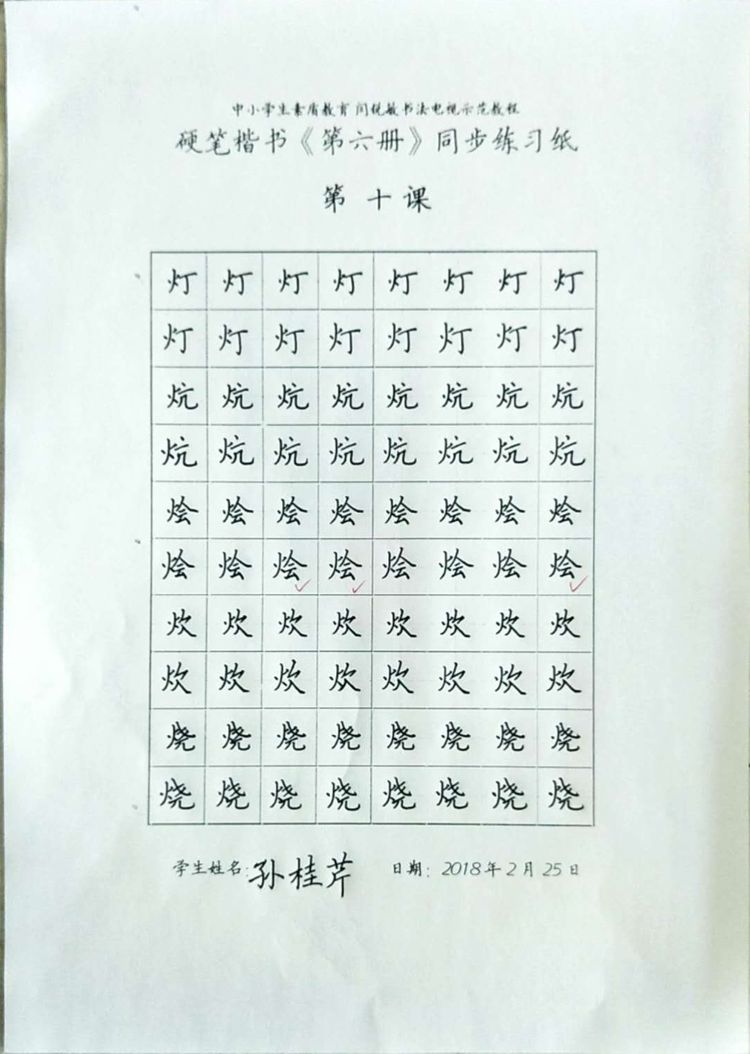 中小学生素质教育闫锐敏书法电视示范教程
硬笔楷书《第六册》同步练习纸
第十课
灯灯灯灯灯灯灯灯
灯灯灯灯灯灯灯灯
炕炕炕炕炕炕炕炕
炕炕炕炕炕炕炕炕
烩烩烩烩烩烩烩烩
烩烩烩烩烩烩烩烩
炊炊炊炊炊炊炊炊
炊炊炊炊炊炊炊炊
烧烧烧烧烧烧烧烧
烧烧烧烧烧烧烧烧
学生姓名:孙桂芹 日期:2018年2月25日